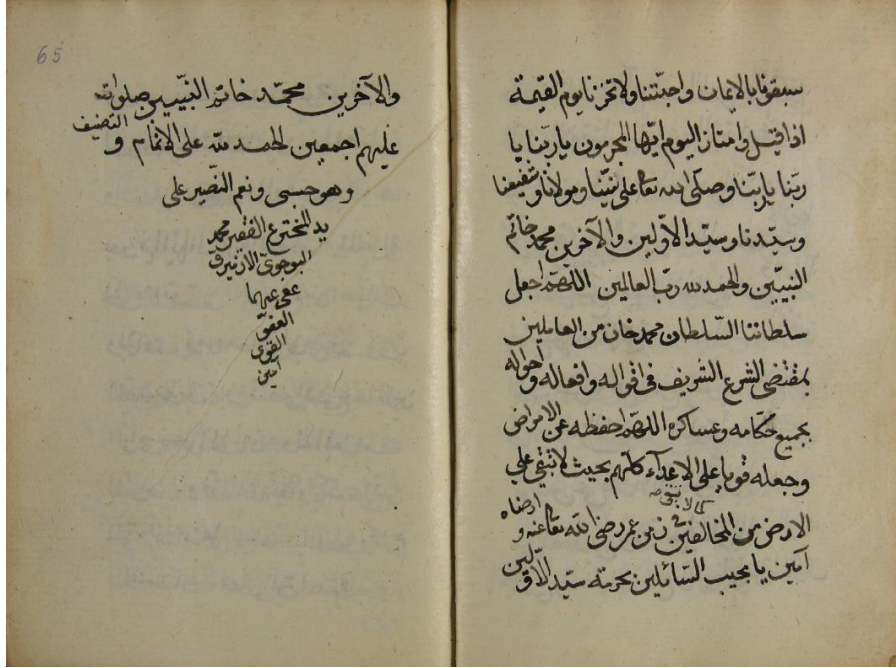 سبقونا بالايمان واحبتنا ولا تخزنا يوم القيمة
اذا قيل وامتازوا اليوم ايها المجرمون يا ربنا يا
ربنا يا ربنا وصلى الله تعا على نبينا ومولانا وشفيعنا
وسيدنا وسيد الاولين والآخرين محمد خاتم
النبيين والحمد لله رب العالمين اللهم اجعل
سلطاننا السلطان محمد خان من العاملين
بمقتضى الشرع الشريف فى اقواله وافعاله واحواله
بجميع حكامه وعساكره اللهم احفظه عن الامراض
وجعله قويا على الاعدآء كلهم بحيث لا تبقى على
كما لا تبقى
الارض من المخالفين فى زمن عمر رضى الله تعا عنه و ارضاه
آمين يا مجيب السائلين بحرمة سيد الاولين
65
والآخرين محمد خاتم النبيين صلوات
عليهم اجمعين الحمد لله على الاتمام و التصنيف
وهو حسبى ونعم النصير على
يد المخترع الفقير محمد
عفى عنهما
العفو
القوى
آمين